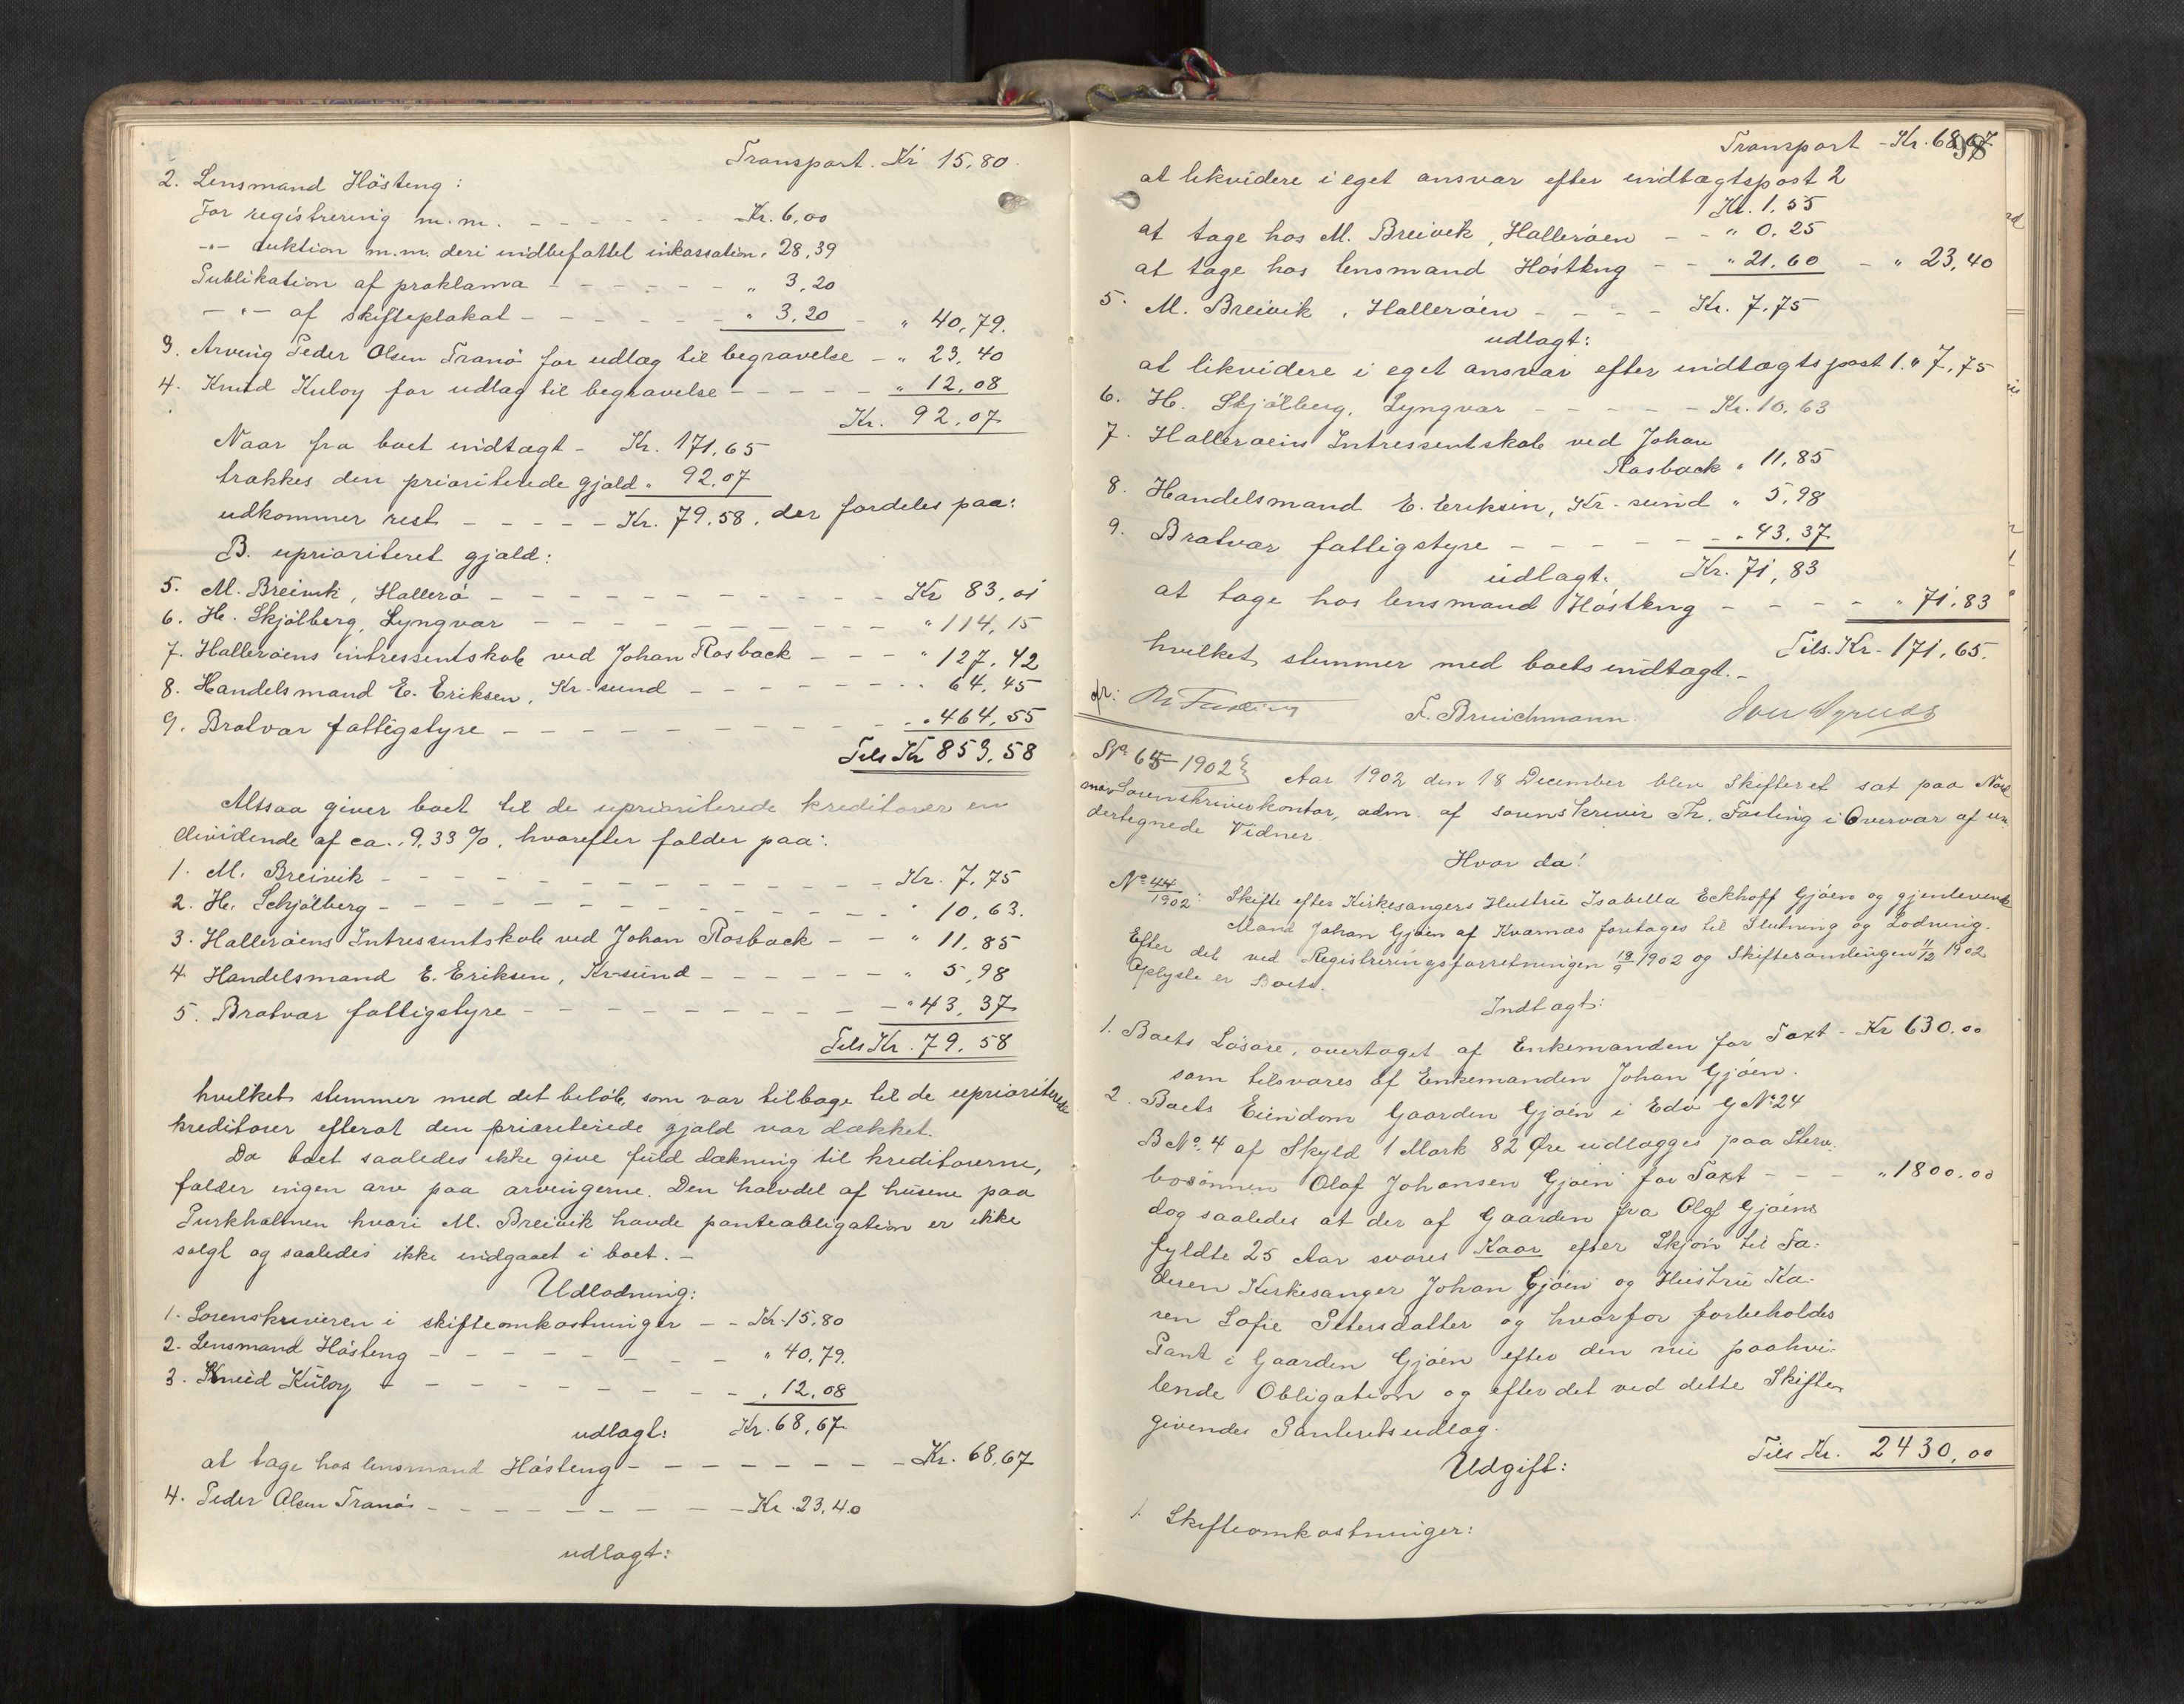 Transport. Kr 15,80.
2. Lensmand Hösteng:
For registrering m.m. - - - - - - Kr. 6,00
-"- auktion m.m. deri indbefattet inkassation " 28,39
Publikation af proklama - - - - - - " 3,20
-"- af skifteplakat - - - - - - " 3,20 - " 40,79.
3. Arving Peder Olsen Tranö for udlæg til begravelse - " 23,40
4. Knud Kuløy for udlæg til begravelse - - - - - " 12,08
Kr. 92,07
Naar fra boet indtægt - Kr. 171,65
trækkes den prioriterede gjæld " 92,07
udkommer rest - - - - - Kr. 79,58, der fordeles paa:
B. uprioriteret gjæld:
5. M. Breivik, Hallerö - - - - - - - - - - - Kr 83,01
6. H. Skjölberg, Lyngvær - - - - - - - - - - " 114,15
7. Halleröens intressentskab ved Johan Rosback - - - " 127,42
8. Handelsmand E. Eriksen, Kr-sund - - - - - - - " 64,45
9. Bratvær fattigstyre - - - - - - - - - - " 464,55
Tils Kr 853,58
Altsaa giver boet til de uprioriterede kreditorer en
dividende af ca. 9,33 %, hvorefter falder paa:
1. M. Breivik - - - - - - - - - - - - Kr. 7,75
2. H. Schjölberg - - - - - - - - - - - - " 10,63.
3. Halleröens Intressentskab ved Johan Rosback - - " 11,85
4 Handelsmand E. Eriksen, Kr-sund - - - - - - " 5,98
5. Bratvær fattigstyre - - - - - - - - - - " 43,37
Tils Kr. 79,58
hvilket stemmer med det beløb, som var tilbage til de uprioriterede
kreditorer efterat den prioriterede gjæld var dækket.
Da boet saaledes ikke give fuld dækning til kreditorerne,
falder ingen arv paa arvingerne. Den halvdel af husene paa
Purkholmen hvori M. Breivik havde panteobligation er ikke
solgt og saaledes ikke indgaaet i boet. -
Udlodning:
1. Sorenskriveren i skifteomkostninger - - Kr. 15,80
2. Lensmand Hösteng - - - - - - - - " 40,79.
3. Knud Kuløy - - - - - - - - - " 12,08
udlagt: Kr. 68,67.
at tage hos lensmand Hösteng - - - - - - - - Kr. 68,67
4. Peder Olsen Tranös - - - - - - - - - Kr. 23,40
udlagt:
98
Transport - Kr. 68,67
at likvidere i eget ansvar efter indtægtspost 2
Kr. 1,55
at tage hos M. Breivik, Halleröen - - " 0,25
at tage hos lensmand Hösteng - - " 21,60 - " 23,40
5. M. Breivik, Halleröen - - - - Kr. 7,75
udlagt:
at likvidere i eget ansvar efter indtægtspost 1. " 7,75
6. H. Skjölberg, Lyngvær - - - - - Kr. 10,63
7. Halleröens Intressentskab ved Johan
Rosback " 11,85
8. Handelsmand E. Eriksen, Kr-sund " 5,98
9. Bratvær fattigstyre - - - - - - " 43,37
udlagt: Kr. 71,83
at tage hos lensmand Hösteng - - - - " 71,83
Tils. Kr. 171,65.
hvilket stemmer med boets indtægt. -
Th. Fasting F. Bruichmann.
No 65 - 1902 } Aar 1902 den 18 December blev Skifteret sat paa Nord
møre Sorenskriverkontor, adm. af sorenskriver Th. Fasting i Overvær af un
dertegnede Vidner.
Hvor da!
No 44/1902: Skifte efter Kirkesangers Hustru Isabella Eckhoff Gjöen og gjenlevende
Mand Johan Gjöen af Kvernæs foretages til Slutning og Lodning.
Efter det ved Registreringsforretningen 18/9 1902 og Skiftesamlingen 11/12 1902
Oplyste er Boets.
Indtægt:
1. Boets Løsøre, overtaget af Enkemanden for Taxt - Kr 630,00
som tilsvares af Enkemanden Johan Gjöen.
2. Boets Eiendom Gaarden Gjöen i Edö G No 24
B No. 4 af Skyld 1 Mark 82 Øre udlægges paa Sterv
bosønnen Olaf Johansen Gjöen for Taxt - - - " 1800,00
dog saaledes at der af Gaarden fra Olaf Gjöens
fyldte 25 Aar svares Kaar efter Skjön til Fa-
deren Kirkesanger Johan Gjöen og Hustru Ka-
ren Sofie Petersdatter og hvorfor forbeholdes
Pant i Gaarden Gjöen efter den nu paahvi-
lende Obligation og efter det ved dette Skifte
givendes Panteretsudlæg.
Tils Kr. 2430,00
Udgift:
1. Skifteomkostninger: